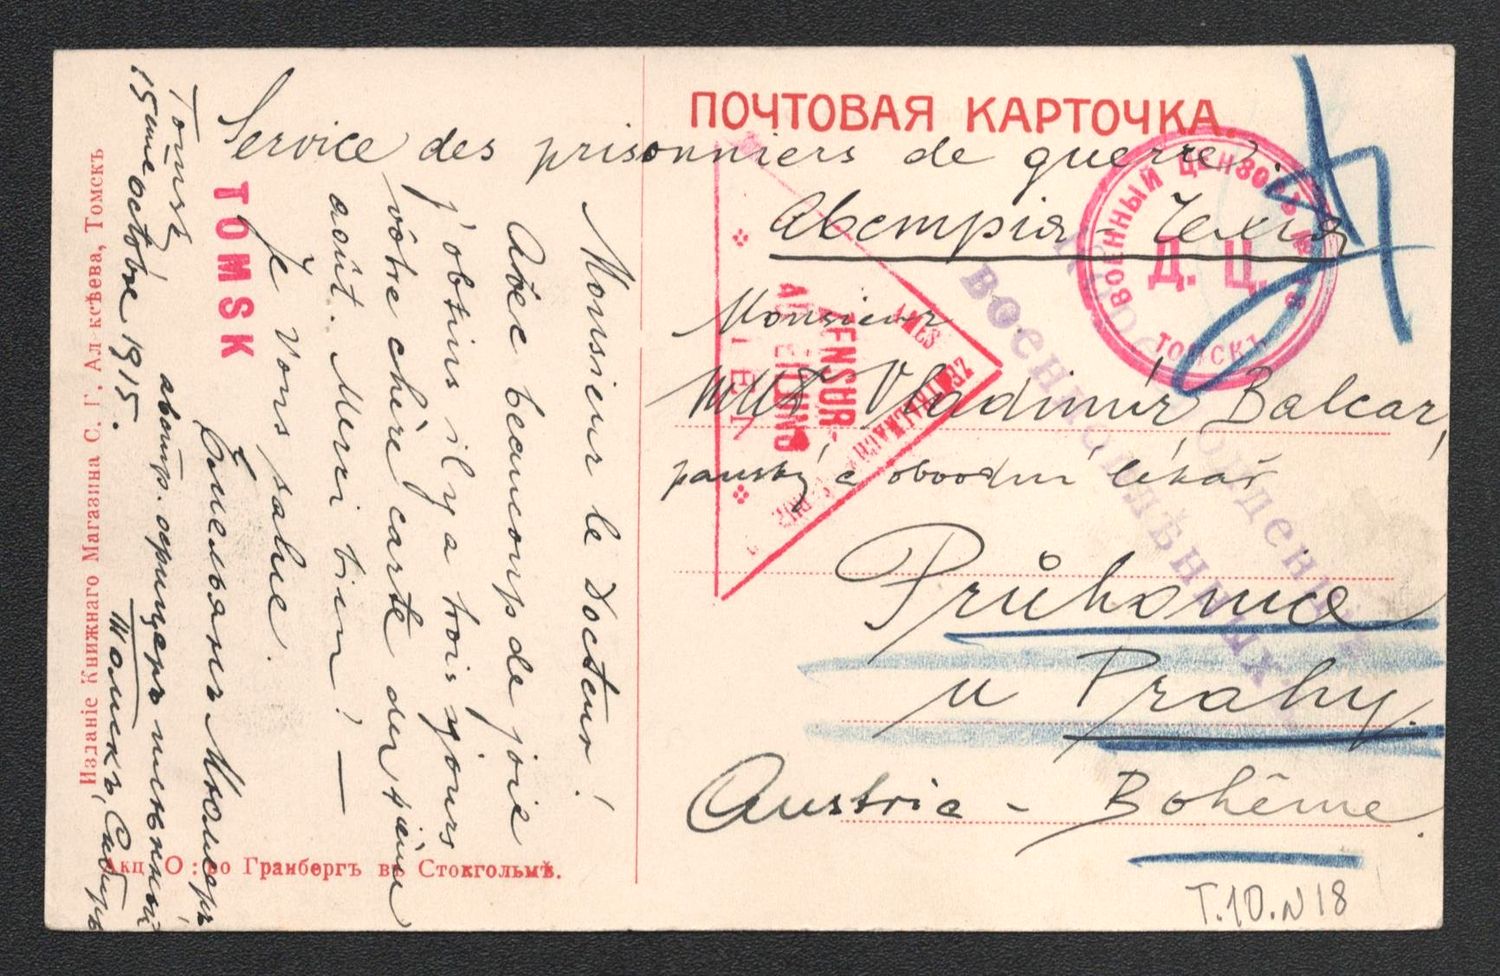 ПОЧТОВАЯ КАРТОЧКА.
Service des prisonniers de guerre.
Австрія - Чехія
Monsieur
MUDr Vladimír Balcar,
panský a obvodní lékař
Průhonice
u Prahy.
Austria - Bohême.
T.10.N18
ВОЕННЫЙ ЦЕНЗОРЪ
Д. Ц.
ТОМСКЪ
военноплѣнныхъ
WIEN
ZENSUR-
ABTEILUNG
TOMSK
Tomsk
15me octobre 1915.
Monsieur le Docteur!
Avec beaucoup de joie
j'obtins il y a trois jours
vôtre chère carte du 4ième
août. Merci bien! —
Je vous salue.
Емельянъ Мюллеръ
австр. офицеръ плѣнный
Томскъ, Сибирь
Изданіе Книжнаго Магазина С. Г. Ал ксѣева, Томскъ
Акц О: во Гранбергъ въ Стокгольмѣ.